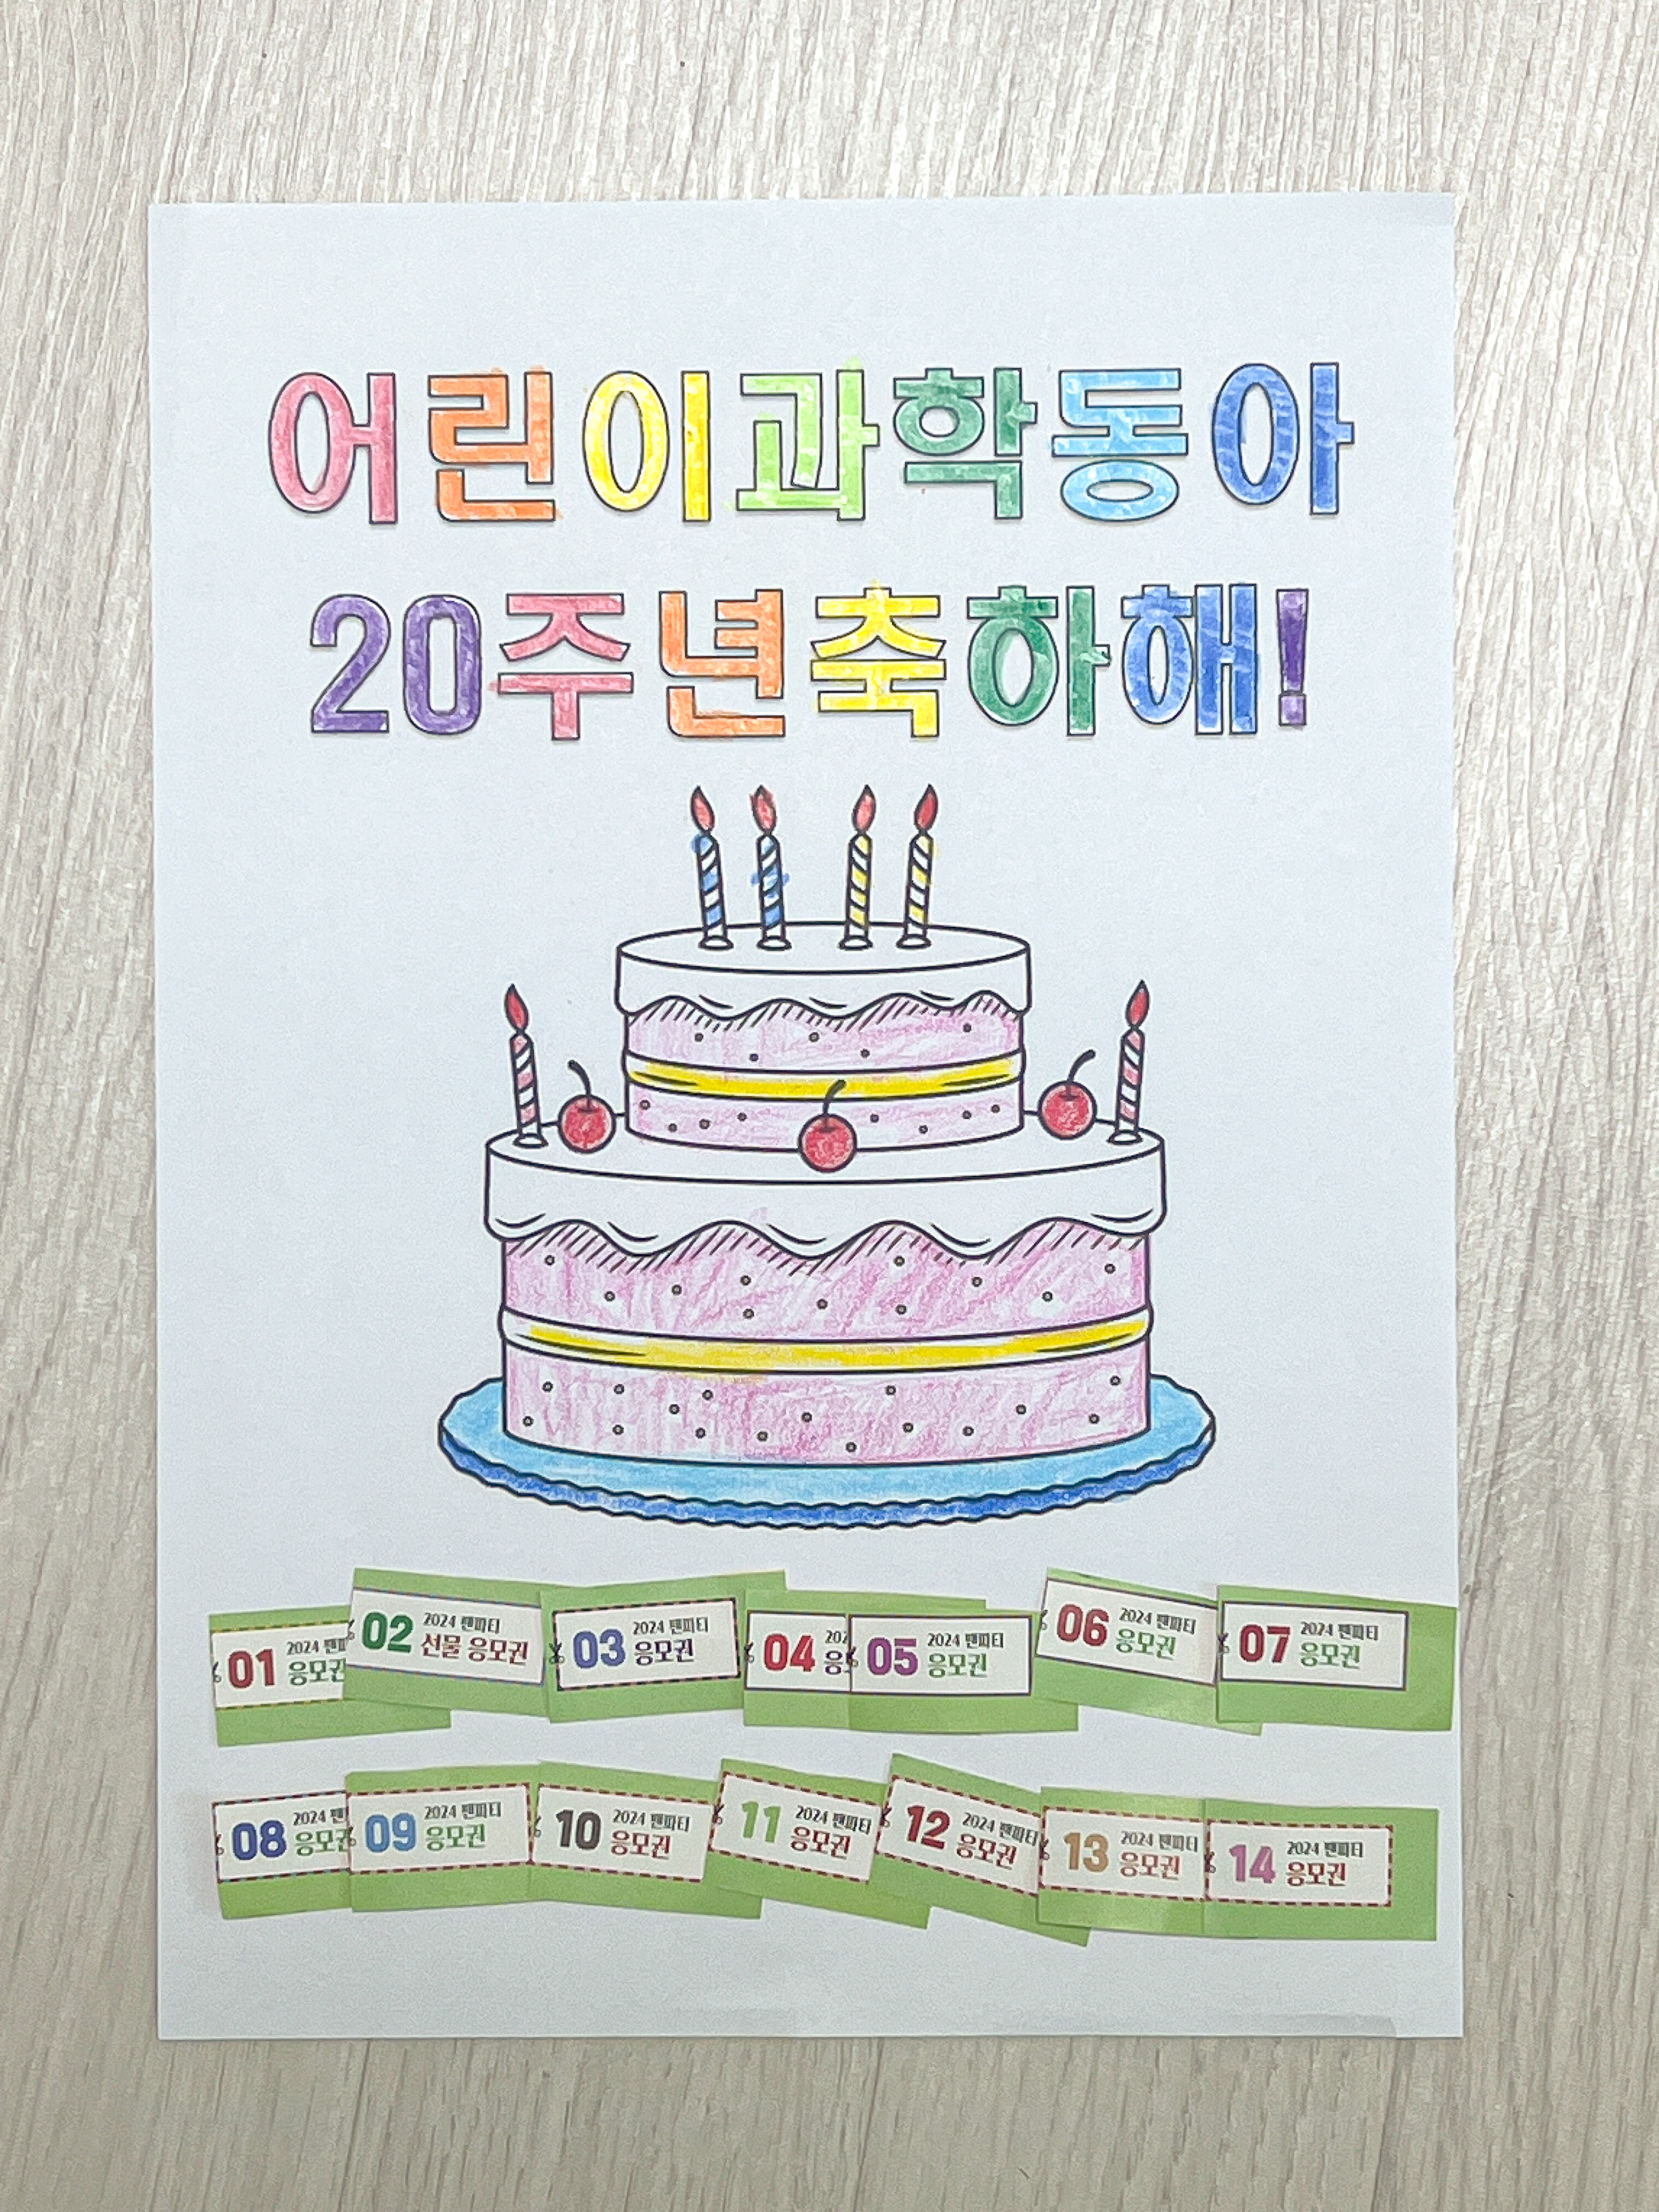 어린이과학동아
20주년축하해!
01 2024 팬파티
응모권
02 2024 팬파티
선물 응모권
03 2024 팬파티
응모권
04
05 2024 팬파티
응모권
06 2024 팬파티
응모권
07 2024 팬파티
응모권
08 2024 팬파티
응모권
09 2024 팬파티
응모권
10 2024 팬파티
응모권
11 2024 팬파티
응모권
12 2024 팬파티
응모권
13 2024 팬파티
응모권
14 2024 팬파티
응모권